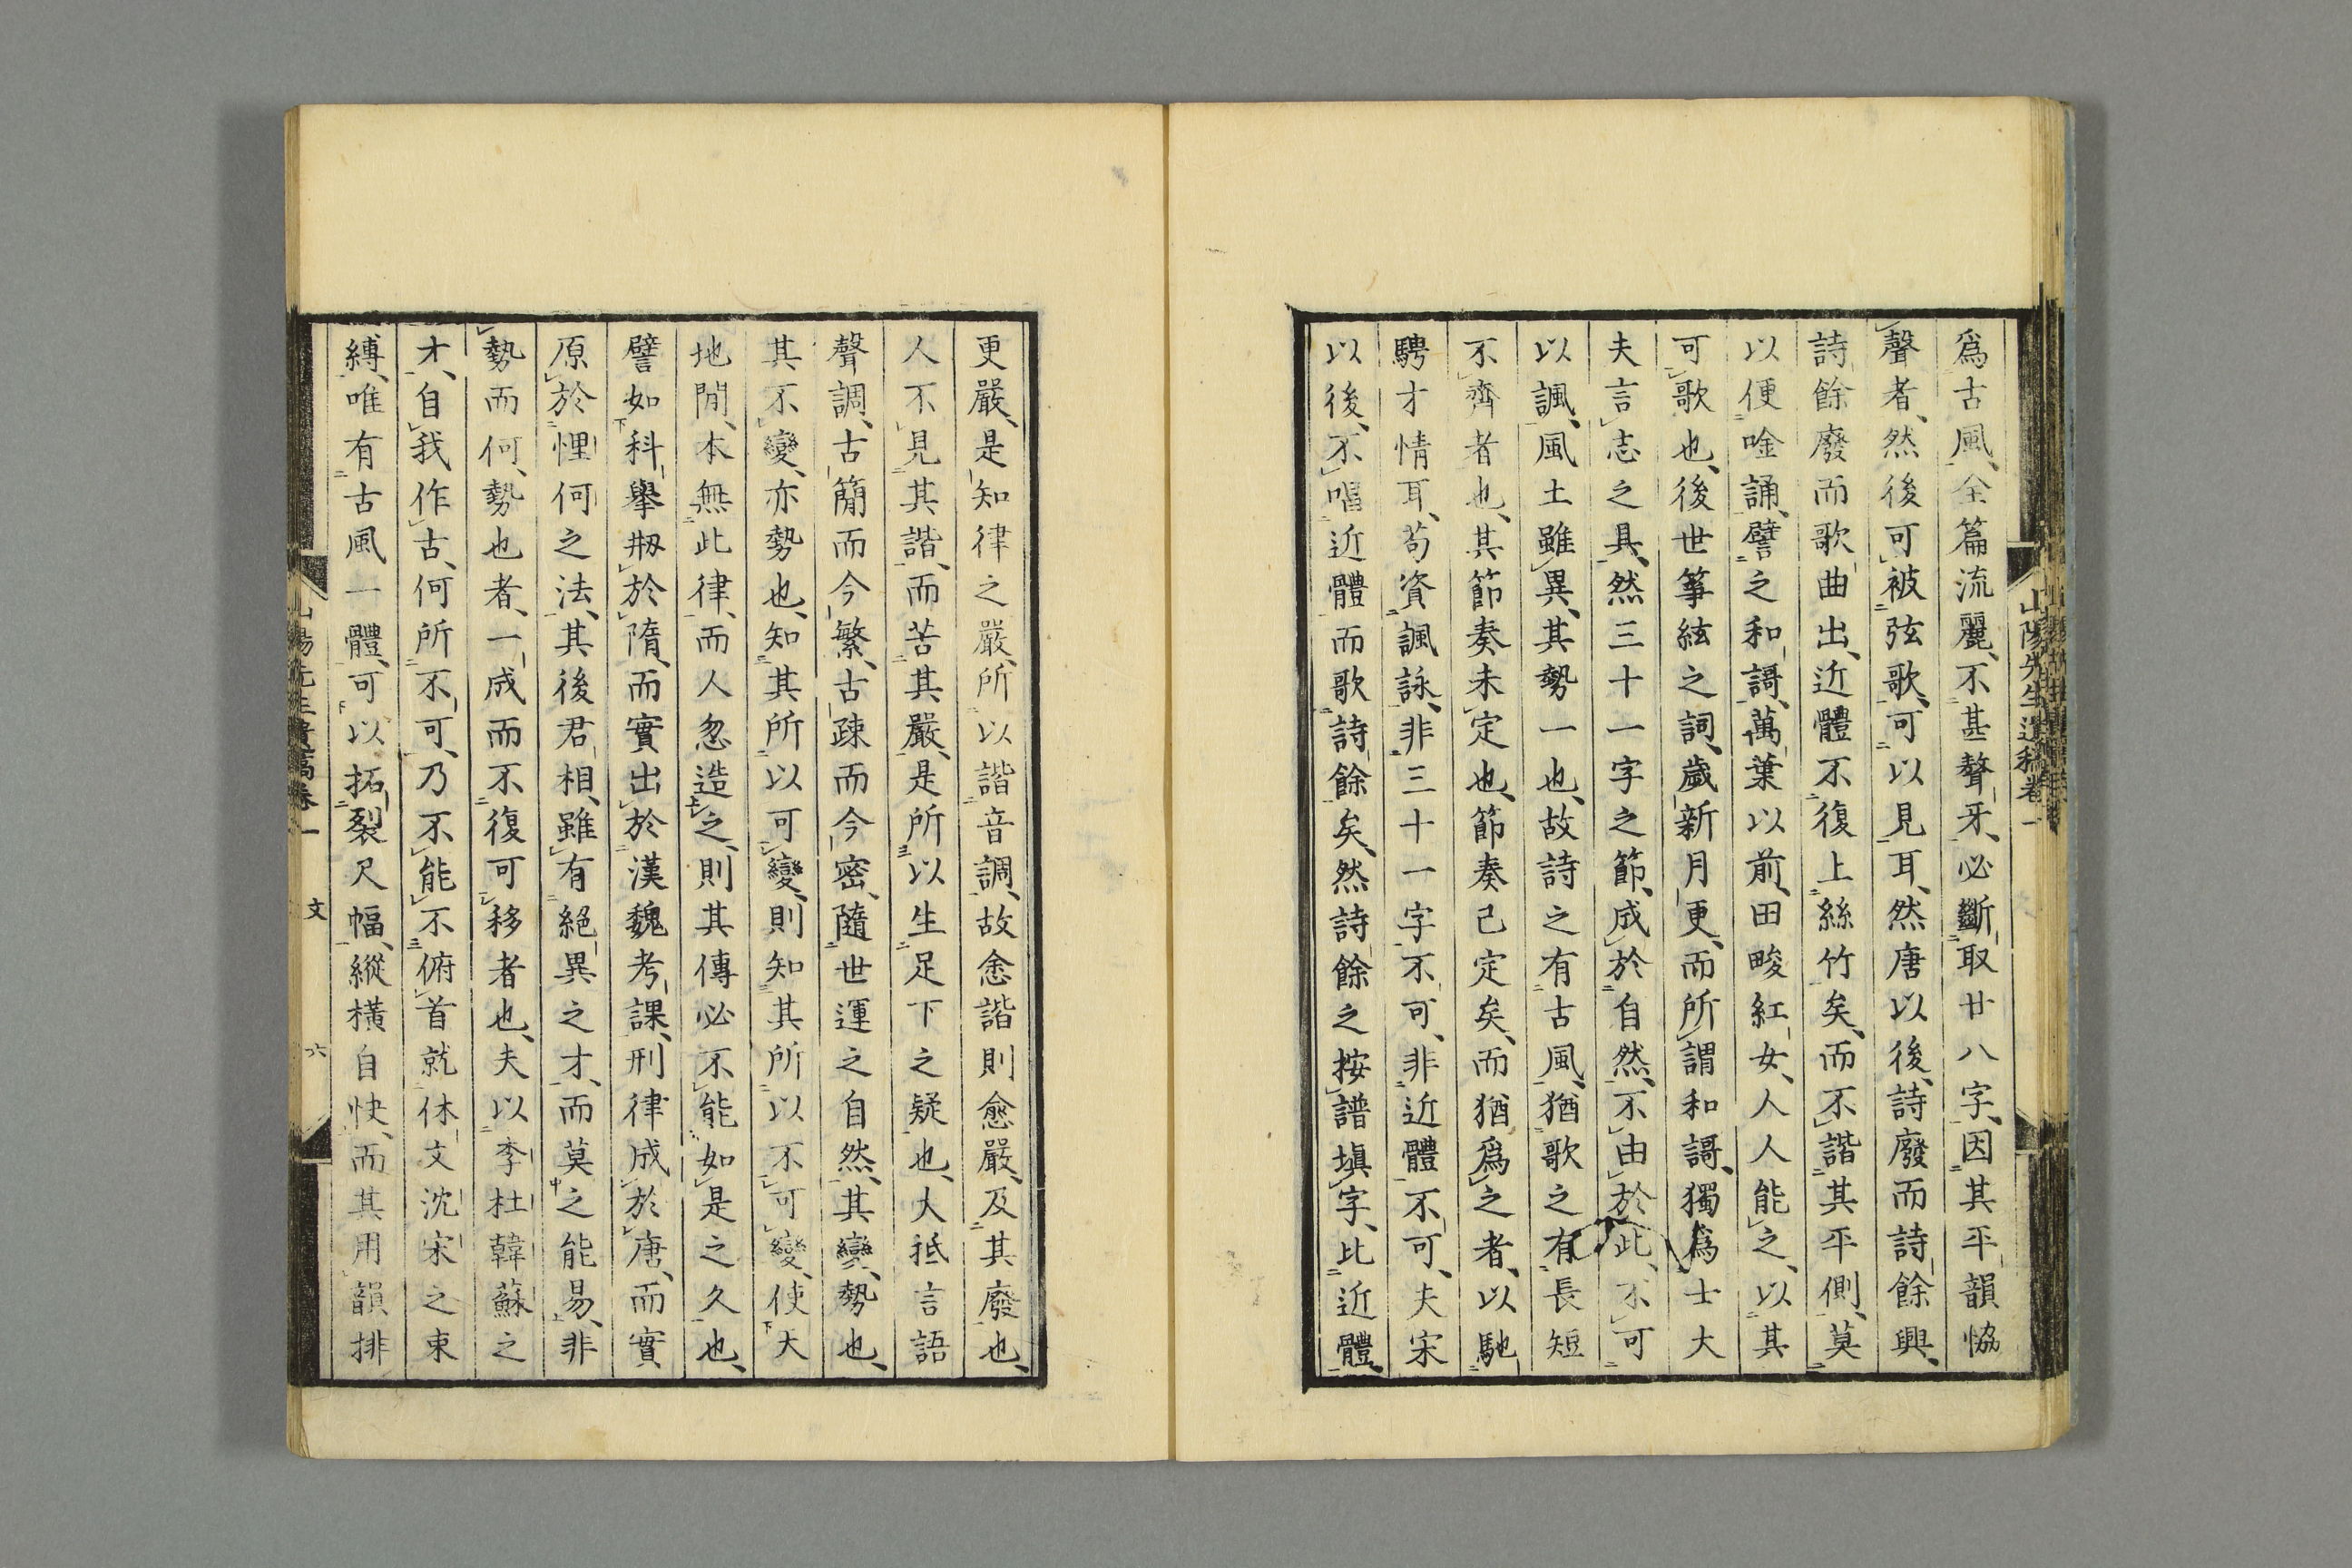 爲古風、全篇流麗、不甚聱牙、必斷取廿八字、因其平韻恊
聲者、然後可被弦歌、可以見耳、然唐以後、詩廢而詩餘興、
詩餘廢而歌曲出、近體不復上絲竹矣、而不諧其平側、莫
以便唫誦、譬之和謌、萬葉以前、田畯紅女、人人能之、以其
可歌也、後世筝絃之詞、歲新月更、而所謂和謌、獨爲士大
夫言志之具、然三十一字之節、成於自然、不由於此、不可
以諷、風土雖異、其勢一也、故詩之有古風、猶歌之有長短
不齊者也、其節奏未定也、節奏已定矣、而猶爲之者、以馳
騁才情耳、苟資諷詠、非三十一字不可、非近體不可、夫宋
以後、不唱近體而歌詩餘矣、然詩餘之按譜塡字、比近體、
更嚴、是知律之嚴、所以諧音調、故愈諧則愈嚴、及其廢也、
人不見其諧、而苦其嚴、是所以生足下之疑也、大抵言語
聲調、古簡而今繁、古疎而今密、隨世運之自然、其變、勢也、
其不變、亦勢也、知其所以可變、則知其所以不可變、使天
地閒、本無此律、而人忽造之、則其傳必不能如是之久也、
譬如科舉、刱於隋、而實出於漢魏考課、刑律成於唐、而實
原於悝何之法、其後君相、雖有絕異之才、而莫之能易、非
勢而何、勢也者、一成而不復可移者也、夫以李杜韓蘇之
才、自我作古、何所不可、乃不能不俯首就休文沈宋之束
縛、唯有古風一體、可以拓裂尺幅、縱橫自快、而其用韻排
山陽先生遺稿卷一
文
六